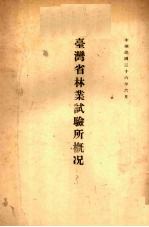 中華民國三十六年六月
臺灣省林業試驗所概況